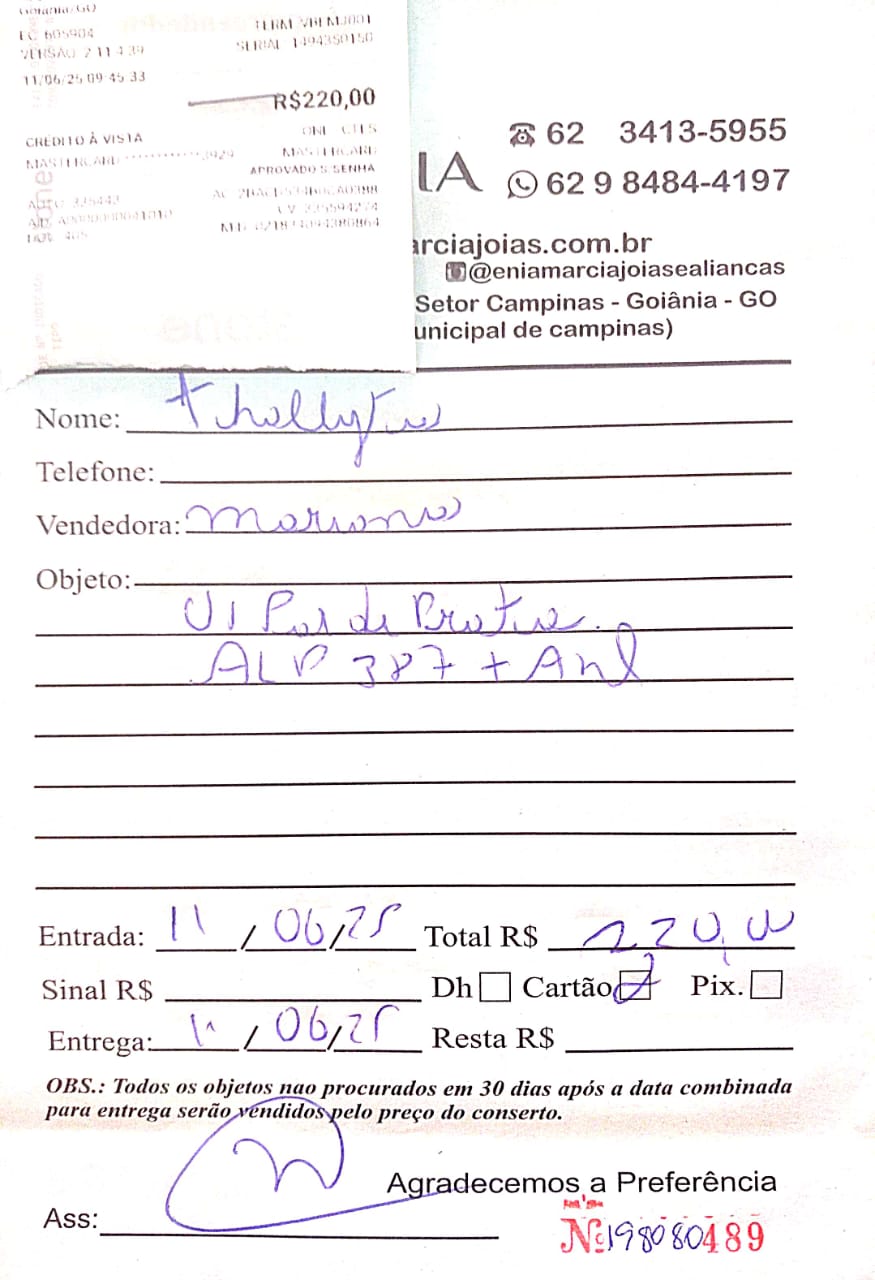 Goiânia/GO
EC 605904 TERM VBLMJ001
VERSÃO 2.11.4.39 SERIAL 1494350150
11/06/25 09:45:33
R$220,00
CRÉDITO À VISTA
MASTERCARD ************3929 MASTERCARD
APROVADO S/SENHA
IA
62 3413-5955
62 9 8484-4197
arciajoias.com.br
@eniamarciajoiasealiancas
Setor Campinas - Goiânia - GO
unicipal de campinas)
Nome:
Telefone:
Vendedora: Mariana
Objeto:
01 Par de Prata.
ALP 387 + Anl
Entrada: 11/06/25 Total R$ 220,00
Sinal R$ Dh Cartão Pix.
Entrega: 11/06/25 Resta R$
OBS.: Todos os objetos nao procurados em 30 dias após a data combinada
para entrega serão vendidos pelo preço do conserto.
Agradecemos a Preferência
Ass:
Nº 198080489